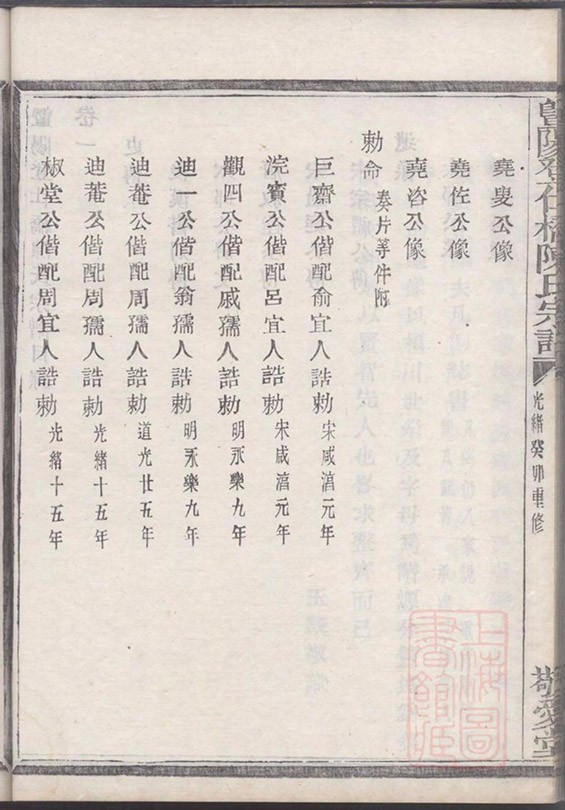 堯叟公像
堯佐公像
堯咨公像
勅命 奏片等件附
巨齋公偕配俞宜人誥勅 宋咸淳元年
浣賓公偕配呂宜人誥勅 宋咸淳元年
觀四公偕配戚孺人誥勅 明永樂九年
迪一公偕配翁孺人誥勅 明永樂九年
迪菴公偕配周孺人誥勅 道光廿五年
迪菴公偕配周孺人誥勅 光緒十五年
椒堂公偕配周宜人誥勅 光緒十五年
陳氏宗譜
光緒癸卯重修
敬愛堂
上海圖書館藏